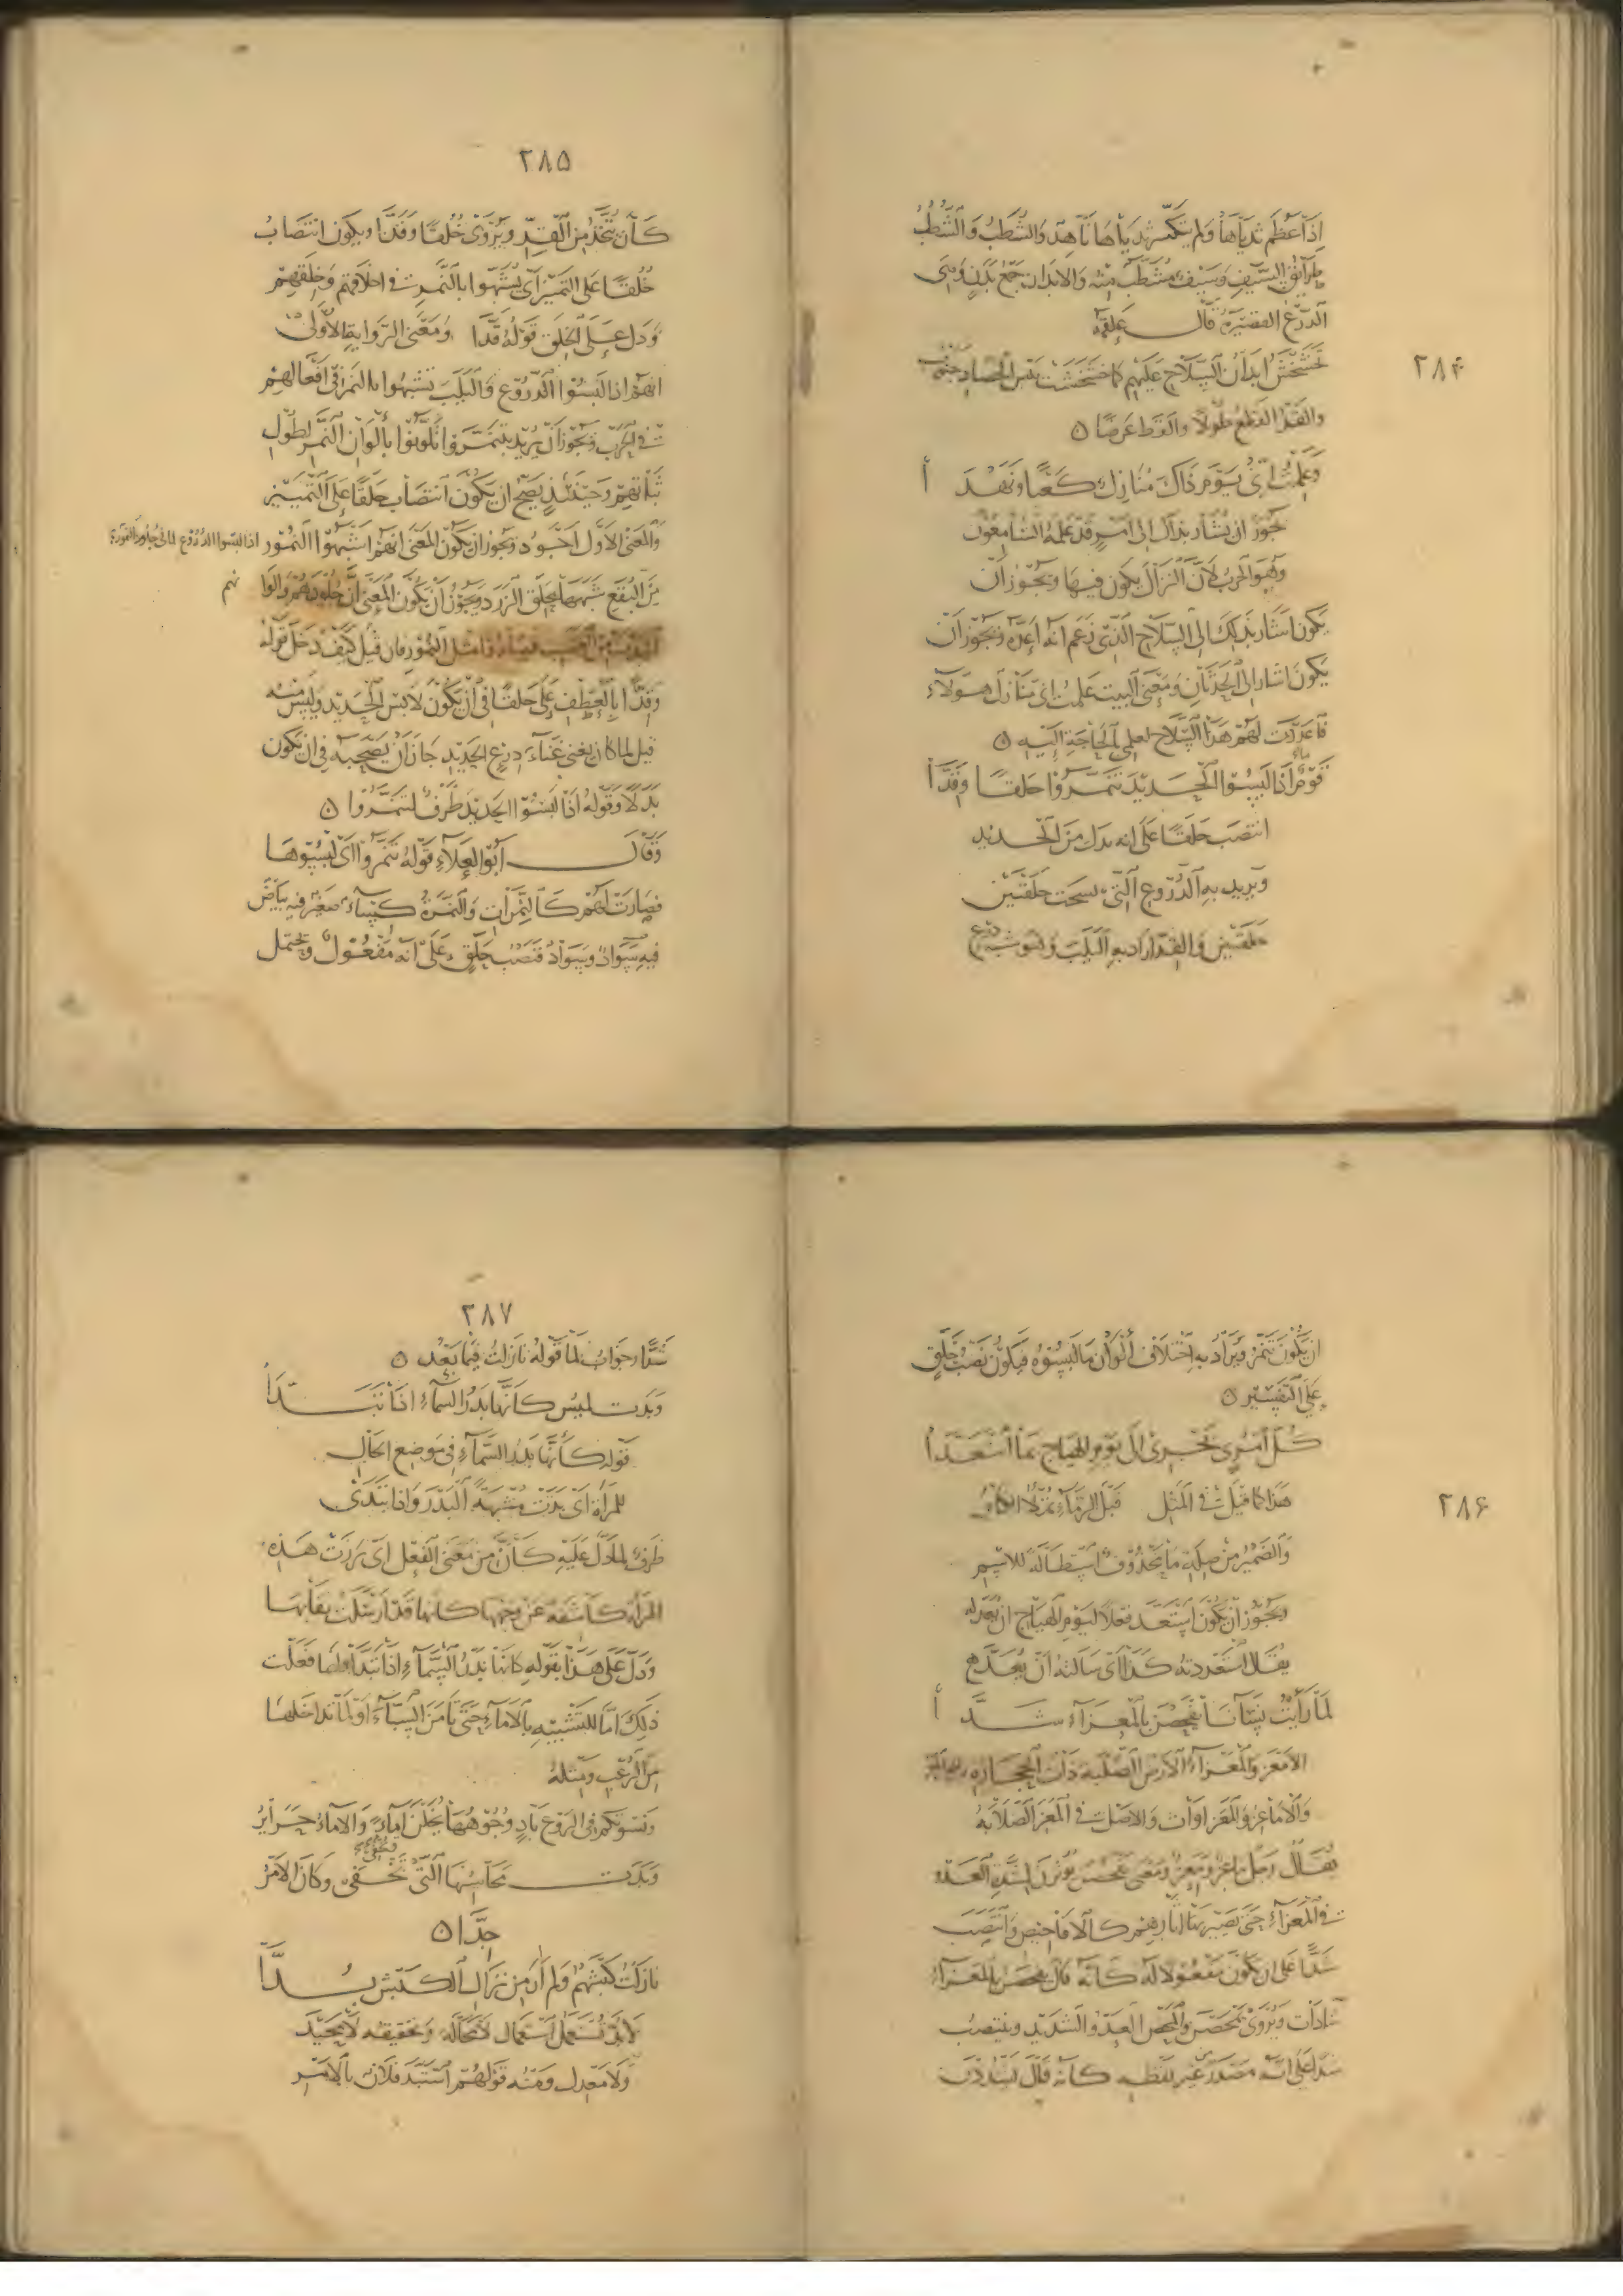 ٢٨۴
اذا عظم ثدياها ولم يتكسر ثدياها ناهد والشطب والشطب
طرائق السيف وسيف مشطب منه والابدان جمع بدن وهى
الدرع القصيرة قال علقمة
تخشخش ابدان السلاح عليهم كما خشخشت يبس الحصاد جنوب
والقد القطع طولا والقط عرضا ٥
وعلمت انى يوم ذاك منازل كعبا ونهدا
يجوز ان يشار بذاك الى امر قد علمه السامعون
وهو الحرب لان النزال يكون فيها ويجوز ان
يكون اشار بذلك الى السلاح الذى زعم انه اعده ويجوز ان
يكون اشار الى الحدثان ومعنى البيت علمت انى منازل هولاء
فاعددت لهم هذا السلاح لعلمى بالحاجة اليه ٥
قوم اذا لبسوا الحديد تنمروا حلقا وقدا
انتصب حلقا على انه بدل من الحديد
ويريد به الدروع التى نسجت حلقتين
حلقتين والقد اراد به اليلب وهو شبه درع
٢٨۵
كان يتخذ من القد ويروى خلقا وقدا ويكون انتصاب
خلقا على التمييز اى يشبهوا بالنمر فى اخلاقهم وخلقهم
ودل على الخلق قوله قدا ومعنى الرواية الاولى
انهم اذا لبسوا الدروع واليلب تشبهوا بالنمر فى افعالهم
فى الحرب ويجوز ان يريد بتنمروا تلونوا بالوان النمر لطول
ثباتهم وحينئذ يصح ان يكون انتصاب حلقا على التمييز
والمعنى الاول اجود ويجوز ان يكون المعنى انهم اشبهوا النمور اذا لبسوا الدروع لما فى جلود النمورة
من البقع شبهها بحلق الزرد ويجوز ان يكون المعنى ان جلودهم والوانهم
النمور فان قيل كيف دخل قوله
وقدا بالعطف على حلقا فى ان يكون لابس الحديد وليس منه
قيل لما كان يغنى غناء درع الحديد جاز ان يصحبه فى ان يكون
بدلا وقوله اذا لبسوا الحديد ظرف لتنمروا ٥
وقال ابو العلاء قوله تنمروا اى لبسوها
فصارت لهم كالنمرات والنمرة كساء صغير فيه بياض
فيه سواد وسواد فنصب حلق على انه مفعول ويحتمل
٢٨۶
ان يكون تنمر ويراد به اختلاف الوان ما لبسوه فيكون نصب حلق
على التفسير ٥
كل امرئ يجرى الى يوم الهياج بما استعدا
هذا كما قيل فى المثل قبل الرماء تملا الكنائن
والضمير من صلة ما محذوف استطالة للاسم
ويجوز ان يكون استعد فعلا ليوم الهياج ان يعد له
يقال استعددته كذا اى سالته ان يعد مع
لما رأيت نساءنا يفحصن بالمعزاء شدا
الامعز والمعزاء الارض الصلبة ذات الحجارة
والاماعز والمعزاوات والاصل فى المعز الصلابة
يقال رجل ماعز ومعز ومعنى يفحصن يوثرن لشدة العدو
فى المعزاء حتى يصير بها اثارهن كالافاحيص وانتصب
شدا على ان يكون مفعولا له كانه قال يفحصن بالمعزاء
شادات ويروى يمحصن والمحص العدو الشديد وينتصب
شدا على انه مصدر من غير لفظه كانه قال يشددن
٢٨٧
شدا وجواب لما قوله نازلت فيما بعد ٥
وبدت لميس كانها بدر السماء اذا تبدا
قوله كانها بدر السماء فى موضع الحال
للمراة اى بدت مشبهة البدر واذا تبدى
ظرف لما دل عليه كان من معنى الفعل اى برزت هذه
المراة كاشفة عن وجهها كانها قد ارسلت نقابها
ودل على هذا بقوله كانها بدر السماء اذا تبدا وانما فعلت
ذلك اما للتشبه بالاماء حتى تامن السباء او لما تداخلها
من الرعب ومثله
ونسوتكم فى الروع باد وجوهها يخلن اماء والاماء حرائر
وبدت محاسنها التى تخفى وكان الامر
جدا ٥
نازلت كبشهم ولم ار من نزال الكبش بدا
لابد تستعمل استعمال لا محالة وتحقيقه لا محيد
ولا معدل ومنه قولهم استبد فلان بالامر